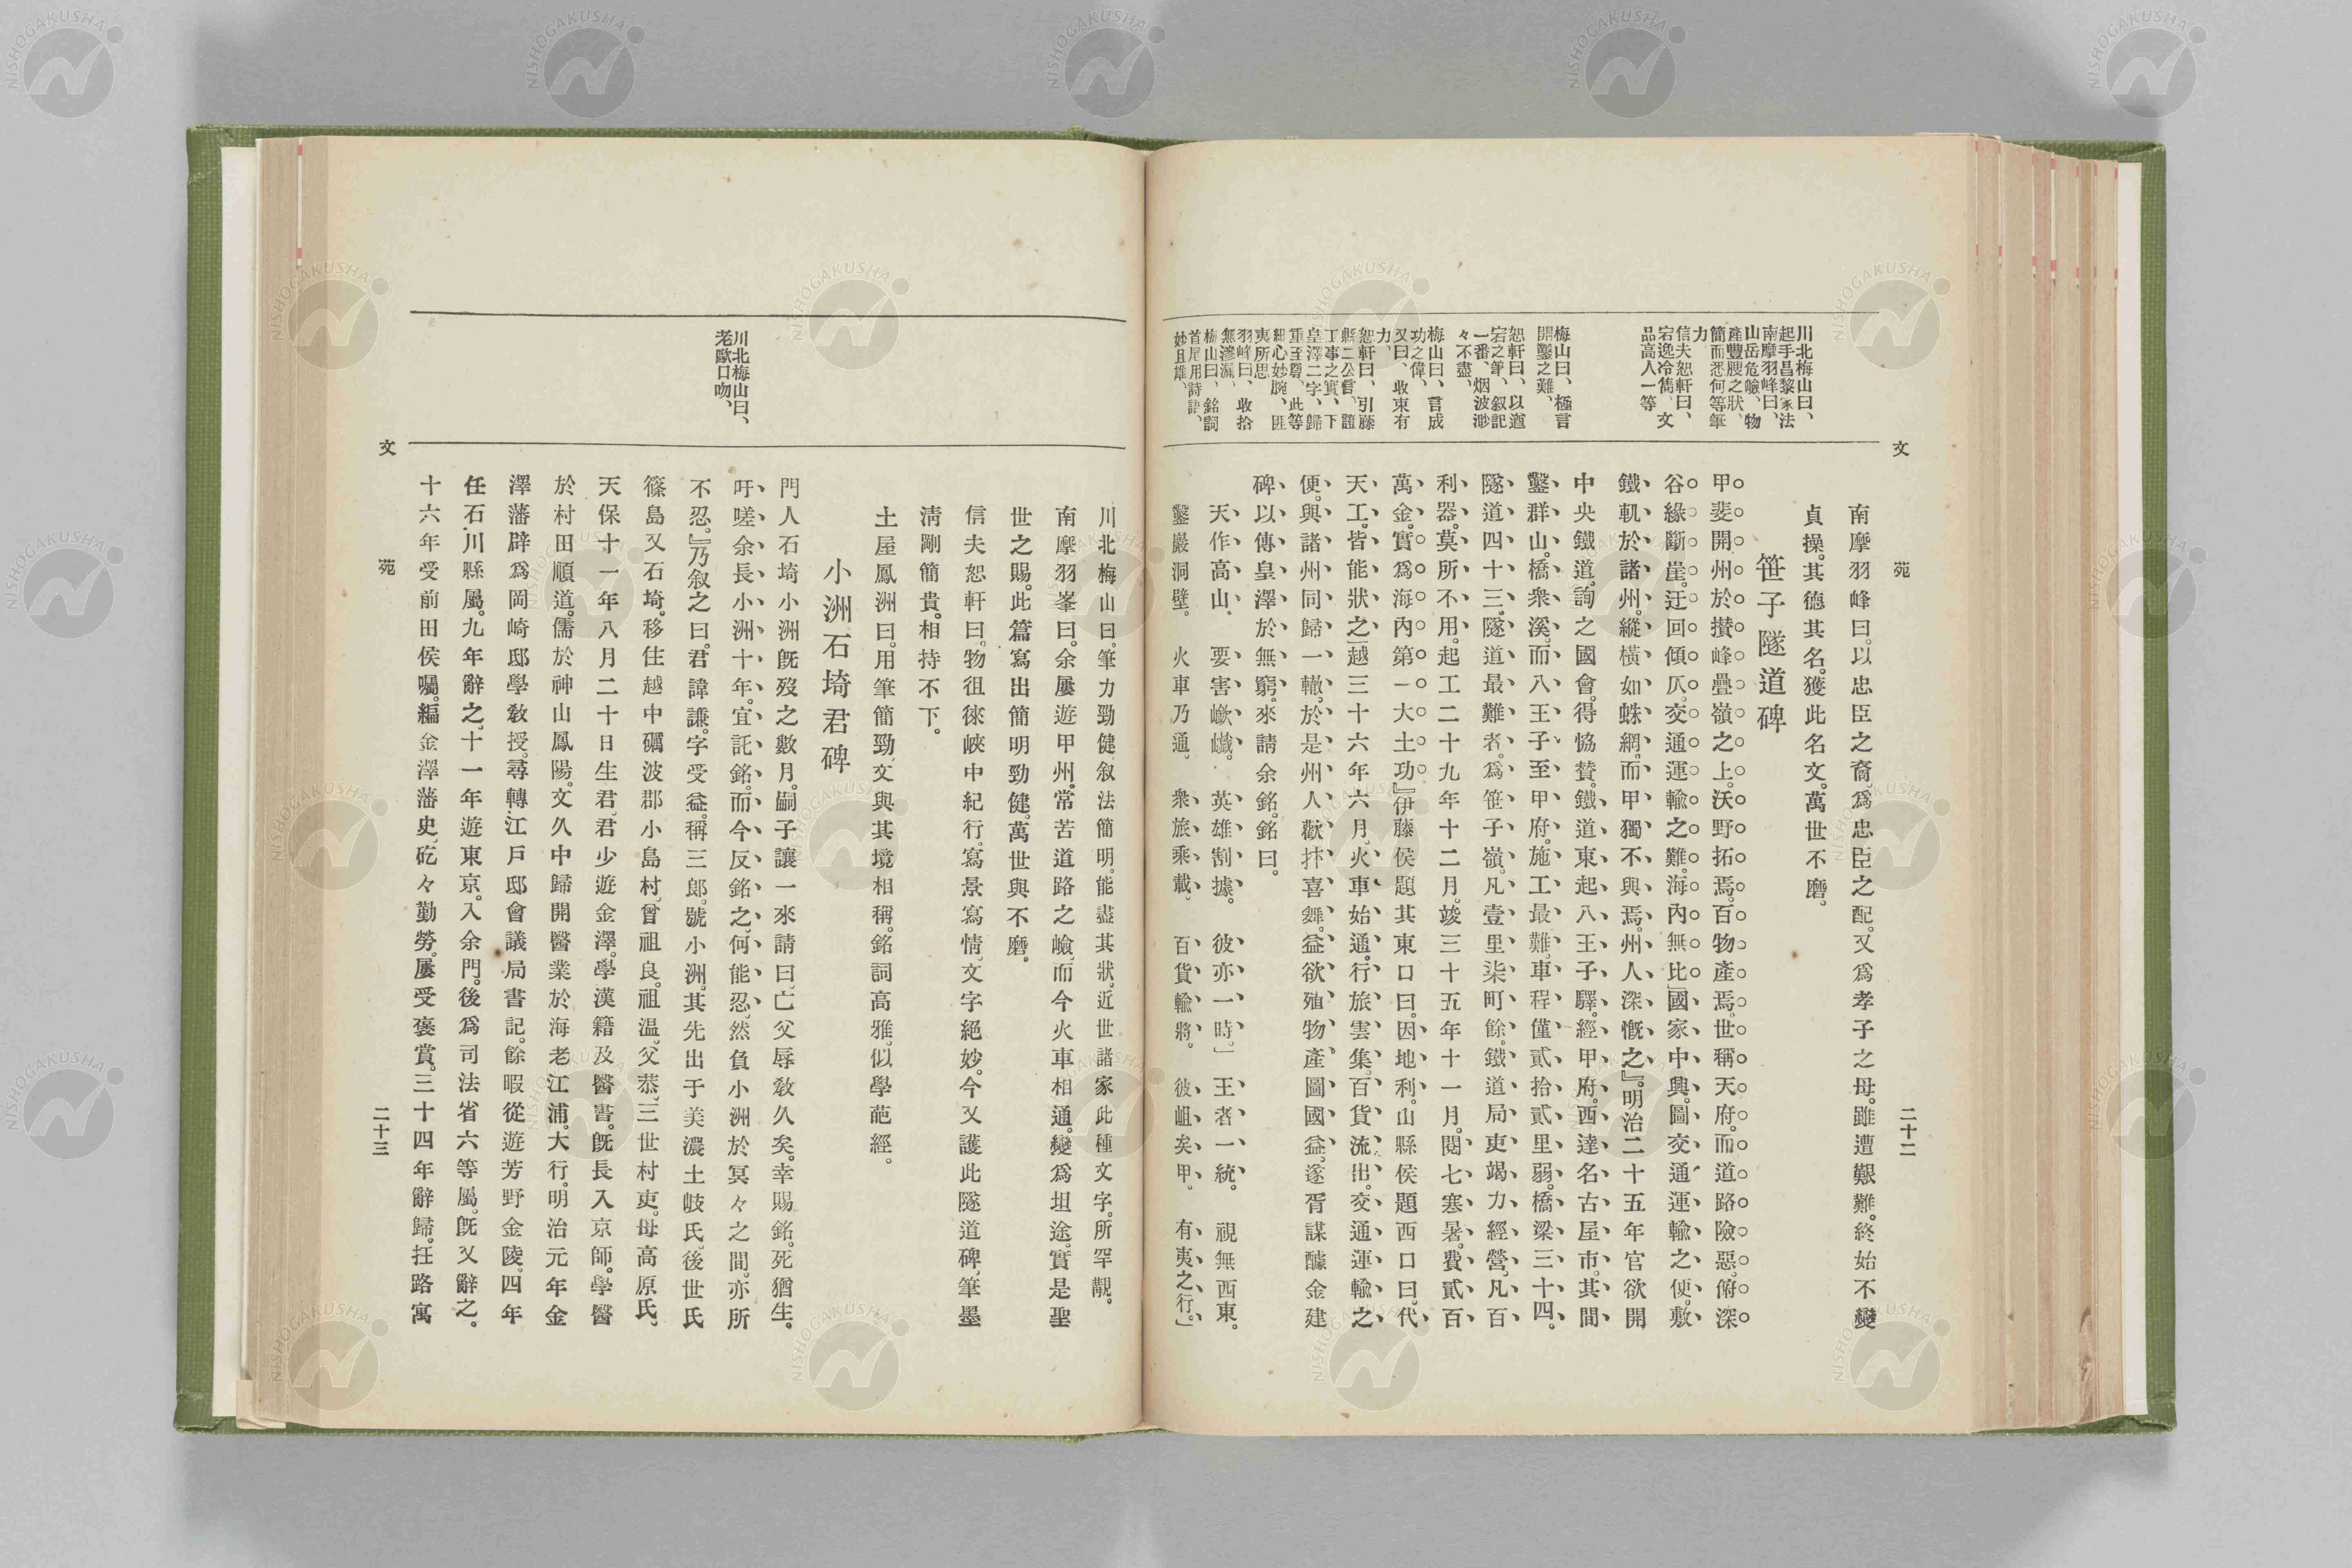 文　苑　二十二
川北梅山曰、
起手昌黎家法
南摩羽峰曰、
山岳危嶮、物
產豐腴之狀、
簡而悉何等筆
力
信夫恕軒曰、
宕逸冷雋、文
品高人一等
梅山曰、極言
開鑿之難、
恕軒曰、以遒
宕之筆、叙記
一番、烟波渺
々不盡、
梅山曰、言成
功之偉、
又曰、收束有
力、
恕軒曰、引藤
縣二公言、證
工事之實、下
皇澤二字、歸
重至尊、此等
細心妙腕、匪
夷所思
羽峰曰、收拾
無滲漏、
梅山曰、銘詞
首尾用詩語、
妙且雄、
南摩羽峰曰。以忠臣之裔。爲忠臣之配。又爲孝子之母。雖遭艱難。終始不變
貞操。其德其名。獲此名文。萬世不磨。
笹子隧道碑
甲斐開州於攅峰疊嶺之上。沃野拓焉。百物產焉。世稱天府。而道路險惡。俯深
谷緣斷崖。迂回傾仄。交通運輸之難。海內無比」國家中興。圖交通運輸之便。敷
鐵軌於諸州。縱橫如蛛網。而甲獨不與焉。州人深慨之』。明治二十五年官欲開
中央鐵道。詢之國會。得恊贊。鐵道東起八王子驛。經甲府。西達名古屋市。其間
鑿群山。橋衆溪。而八王子至甲府。施工最難。車程僅貳拾貳里弱。橋梁三十四。
隧道四十三。隧道最難者。爲笹子嶺。凡壹里柒町餘。鐵道局吏竭力經營。凡百
利器。莫所不用。起工二十九年十二月。竣三十五年十一月。閱七寒暑。費貳百
萬金。實爲海內第一大土功』伊藤侯題其東口曰。因地利。山縣侯題西口曰。代
天工。皆能狀之」越三十六年六月。火車始通。行旅雲集。百貨流出。交通運輸之
便。與諸州同歸一轍。於是州人歡抃喜舞。益欲殖物產圖國益。遂胥謀醵金建
碑。以傳皇澤於無窮。來請余銘。銘曰。
天作高山。　要害巇巇。　英雄割據。　彼亦一時。」　王者一統。　視無西東。
鑿巖洞壁。　火車乃通。　衆旅乘載。　百貨輸將。　彼岨矣甲。　有夷之行。」
川北梅山曰。筆力勁健。叙法簡明。能盡其狀。近世諸家此種文字。所罕觀。
南摩羽峯曰。余屢遊甲州。常苦道路之嶮。而今火車相通。變爲坦途。實是聖
世之賜。此篇寫出簡明勁健。萬世與不磨。
信夫恕軒曰。物徂徠峽中紀行。寫景寫情。文字絕妙。今又護此隧道碑。筆墨
淸剛簡貴。相持不下。
土屋鳳洲曰。用筆簡勁。文與其境相稱。銘詞高雅。似學葩經。
小洲石埼君碑
川北梅山曰、
老歐口吻、
門人石埼小洲旣歿之數月。嗣子讓一來請曰。亡父辱敎久矣。幸賜銘。死猶生。
吁嗟余長小洲十年。宜託銘。而今反銘之。何能忍。然負小洲於冥々之間。亦所
不忍。』乃叙之曰。君諱謙。字受益。稱三郎。號小洲。其先出于美濃土岐氏。後世氏
篠島又石埼。移住越中礪波郡小島村。曾祖良。祖溫。父恭。三世村吏。母高原氏。
天保十一年八月二十日生君。君少遊金澤。學漢籍及醫書。旣長入京師。學醫
於村田順道。儒於神山鳳陽。文久中歸開醫業於海老江浦。大行。明治元年金
澤藩辟爲岡崎邸學敎授。尋轉江戶邸會議局書記。餘暇從遊芳野金陵。四年
任石川縣屬。九年辭之。十一年遊東京。入余門。後爲司法省六等屬。旣又辭之。
十六年受前田侯囑。編金澤藩史。矻々勤勞。屢受褒賞。三十四年辭歸。抂路寓
文　苑　二十三